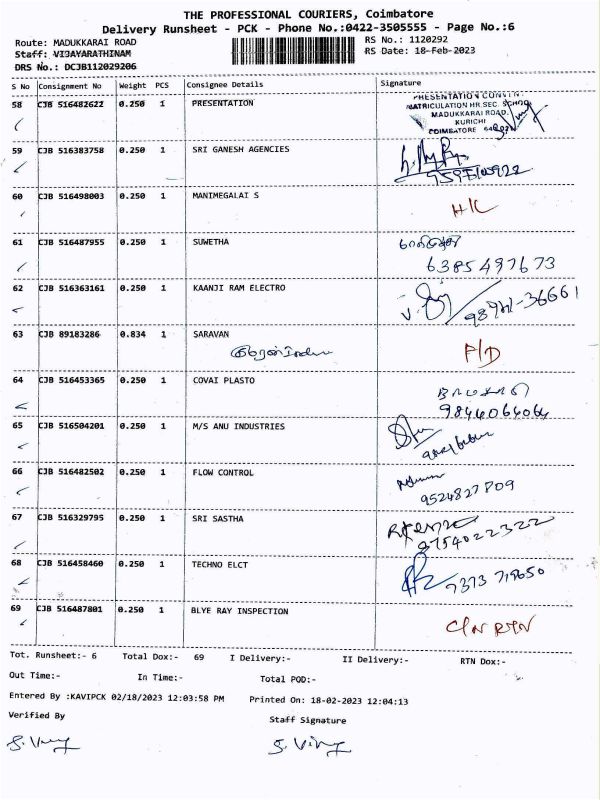 THE PROFESSIONAL COURIERS, Coimbatore
Delivery Runsheet - PCK - Phone No.:0422-3505555 - Page No.:6
Route: MADUKKARAI ROAD RS No.: 1120292
Staff: VIJAYARATHINAM RS Date: 18-Feb-2023
DRS No.: DCJB112029206
S No Consignment No Weight PCS Consignee Details Signature
58 CJB 516482622 0.250 1 PRESENTATION
PRESENTATION CONVENT
MATRICULATION HR.SEC. SCHOOL
MADUKKARAI ROAD,
KURICHI
COIMBATORE
59 CJB 516383758 0.250 1 SRI GANESH AGENCIES
60 CJB 516498003 0.250 1 MANIMEGALAI S H/C
61 CJB 516487955 0.250 1 SUWETHA
6385497673
62 CJB 516363161 0.250 1 KAANJI RAM ELECTRO
63 CJB 89183286 0.834 1 SARAVAN P/D
64 CJB 516453365 0.250 1 COVAI PLASTO
9844064064
65 CJB 516504201 0.250 1 M/S ANU INDUSTRIES
66 CJB 516482502 0.250 1 FLOW CONTROL
9524827809
67 CJB 516329795 0.250 1 SRI SASTHA
9754022322
68 CJB 516458460 0.250 1 TECHNO ELCT
69 CJB 516487801 0.250 1 BLYE RAY INSPECTION C/N RTN
Tot. Runsheet:- 6 Total Dox:- 69 I Delivery:- II Delivery:- RTN Dox:-
Out Time:- In Time:- Total POD:-
Entered By :KAVIPCK 02/18/2023 12:03:58 PM Printed On: 18-02-2023 12:04:13
Verified By Staff Signature